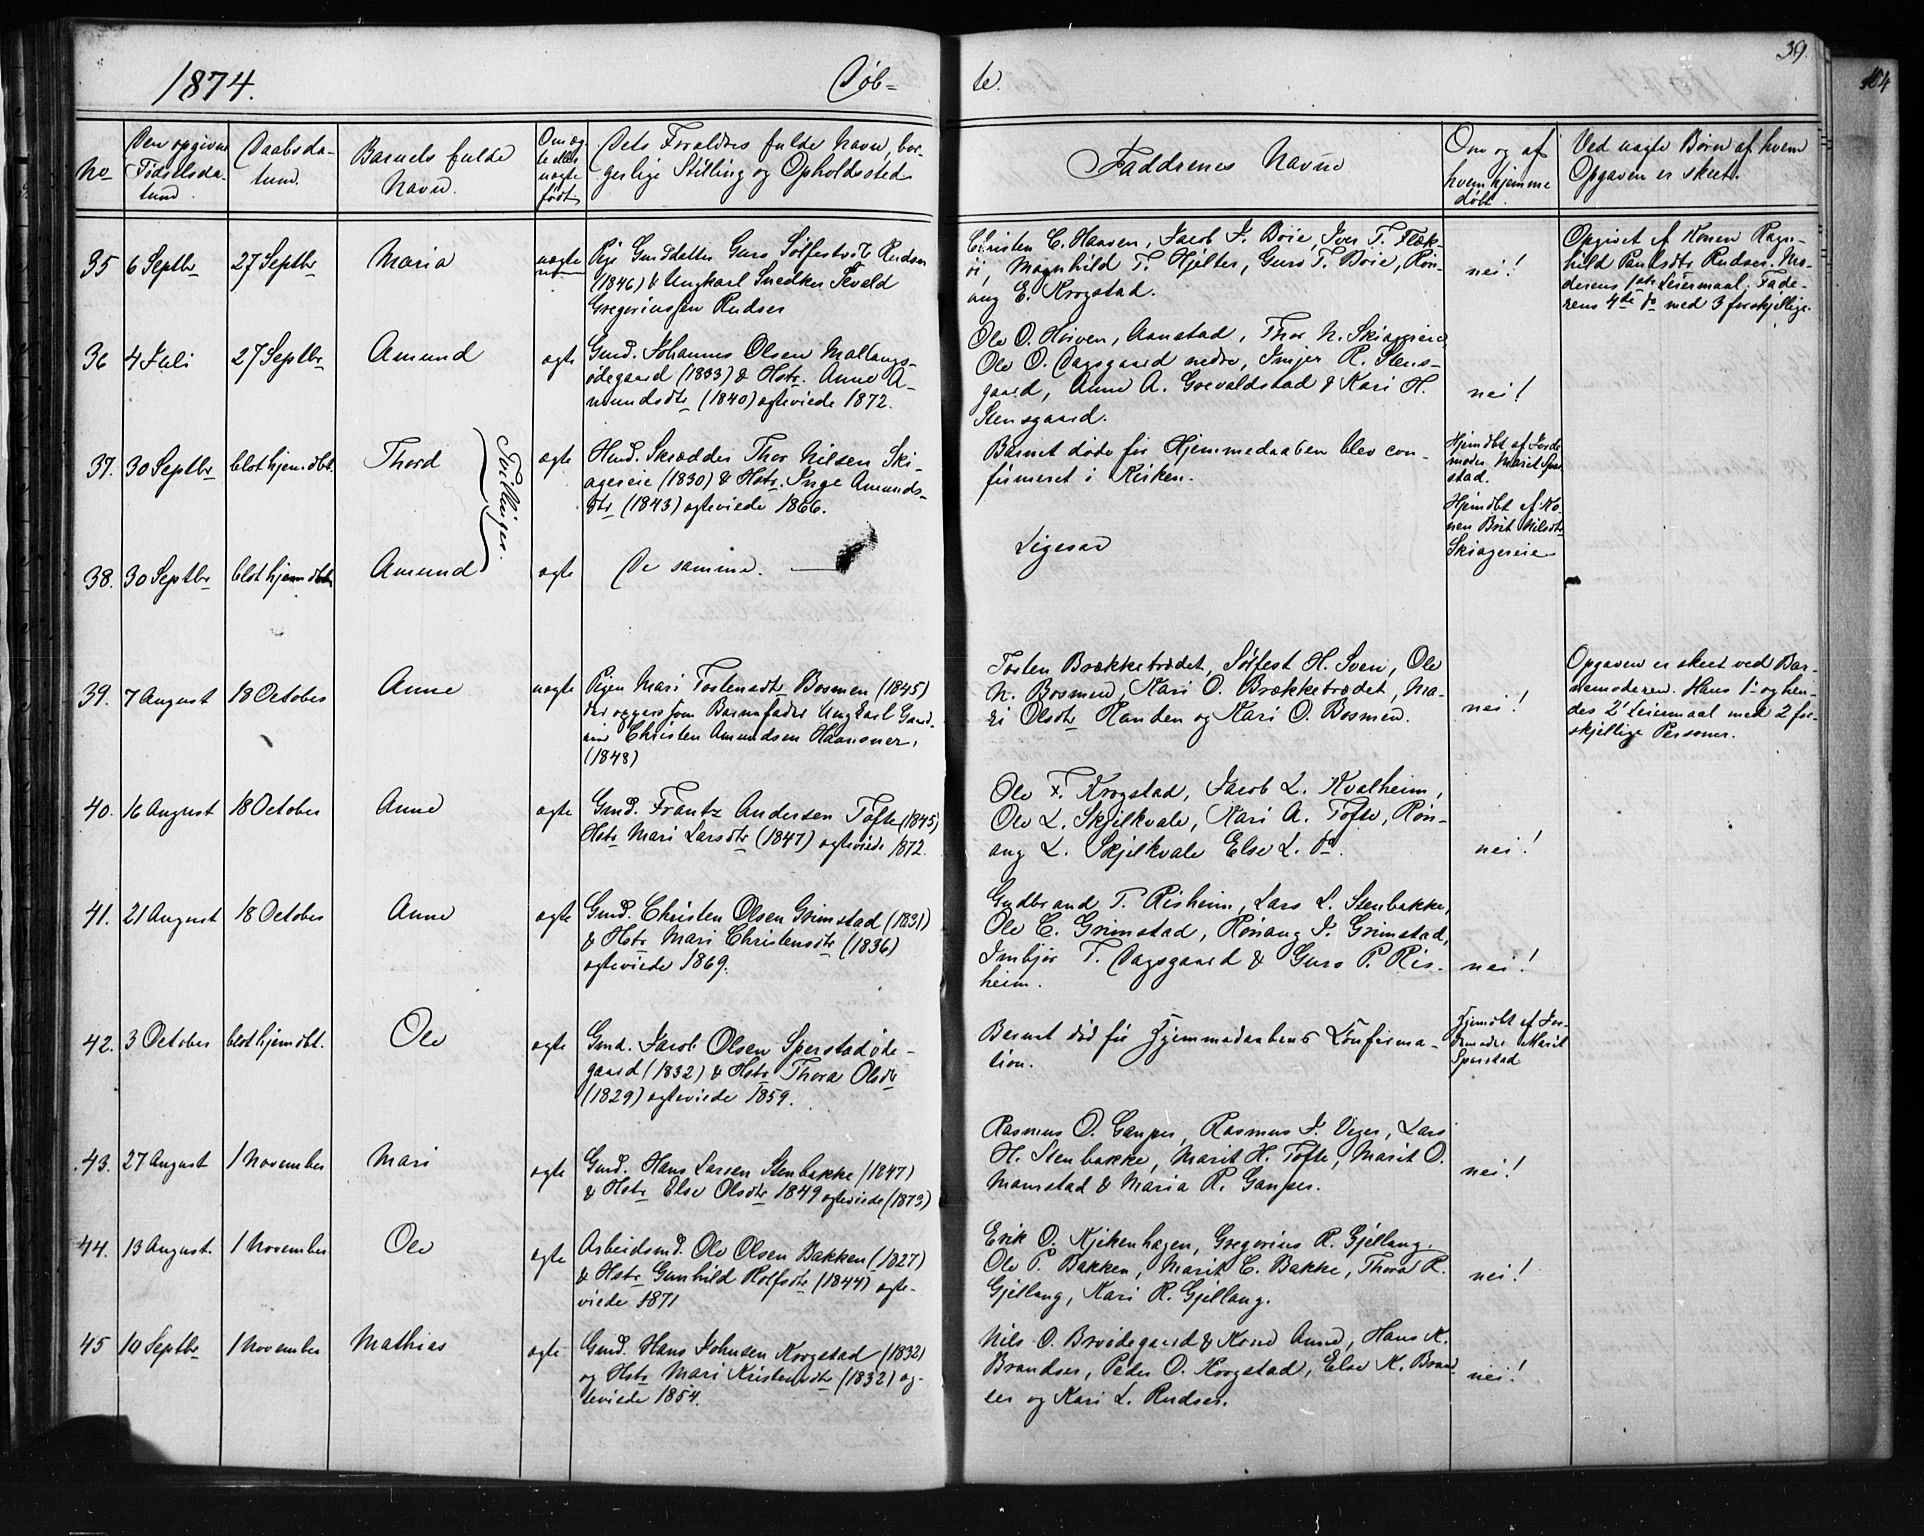 39.
104
1874.
Døb-
te.
No
Den opgivne Fødselsdatum
Daabsdatum.
Barnets fulde Navn.
Om ægte eller uægte født
Dets Forældres fulde Navn, borgerlige Stilling og Opholdssted
Faddrenes Navne
Om og af hvem hjemmedøbt.
Ved uægte Børn af hvem Opgaven er skeet.
35 6 Septbr 27 Septbr Maria uægte
Pige Guro Sølfestsdtr Rudser
(1846) & Ungkarl Snedker Sevald
Gregoriussen Rudser
Christen C. Haaven, Jacob J. Boie, Iver T. Flek-
øi, Magnhild T. Hjelter, Guro T. Boie, Røn-
aug E. Krogstad.
nei!
Opgivet af Konen Ragn-
hild Paulsdtr Rudser. Mo-
derens 1ste Leiermaal. Fade-
rens 4de do med 3 forskjellige.
36 4 Juli 27 Septbr Amund ægte
Gmd. Johannes Olsen Mallangs-
ødegaard (1833) & Hstr. Anne A-
mundsdtr (1840) ægteviede 1872.
Ole O. Horven, Aanstad, Thor N. Skiagereie,
Ole O. Dagsgaard nedre, Imjer R. Stens-
gaard, Anne A. Grevaldstad & Kari H.
Stensgaard.
nei!
37. 30 Septbr blot hjemdbt. Thord ægte
Tvillinger.
Hmd. Skrædder Thor Nilsen Ski-
agereie (1830) & Hstr. Inge Amunds-
dtr (1843) ægteviede 1866.
Barnet døde før Hjemmedaaben blev con-
firmeret i Kirken.
Hjemdbt af Jorde-
moder Marit Sper-
stad.
38. 30 Septbr blot hjemdbt Amund ægte
De samme.
Ligesaa
Hjemdbt af Ko-
nen Brit Nilsdtr
Skiagereie
39. 7 August 18 October Anne uægte
Pigen Mari Tostensdtr Bosmen (1845)
der opgav som Barnefader Ungkarl Gaard-
Christen Amundsen Haansner,
(1848)
Tosten Brækketrædet, Sølfest H. Sveen, Ole
N. Bosmen, Kari O. Brækketrædet, Ma-
ri Olsdtr Randen og Kari O. Bosmen.
nei!
Opgaven er skeet ved Bar-
nemoderen. Hans 1ste og hen-
des 2det Leiermaal med 2 for-
skjellige Personer.
40. 16 August 18 October Anne ægte
Gmd. Frantz Andersen Tofte (1845)
Hstr Mari Larsdtr (1847) ægteviede 1872.
Ole F. Krogstad, Jacob L. Kvalheim,
Ole L. Skjelkvale, Kari A. Tofte, Røn-
aug L. Skjelkvale Else L. do.
nei!
41. 21 August 18 October Anne ægte
Gmd. Christen Olsen Grimstad (1831)
& Hstr Mari Christensdtr (1836)
ægteviede 1869.
Gudbrand T. Risheim, Lars L. Stenbakke,
Ole C. Grimstad, Rønaug J. Grimstad,
Imbjør T. Dagsgaard & Guro P. Ris-
heim.
nei!
42. 3 October blot hjemdbt. Ole ægte
Gmd. Jacob Olsen Sperstadøde-
gaard (1832) & Hstr Thora Olsdtr
(1829) ægteviede 1859.
Barnet død før Hjemmedaabens Konfirma-
tion.
Hjemdbt af Jor-
demoder Marit
Sperstad
43. 27 August 1 November Mari ægte
Gmd. Hans Larsen Stenbakke (1847)
& Hstr Else Olsdtr 1849 ægteviede (1873)
Rasmus O. Gauper, Rasmus J. Viger, Lars
H. Stenbakke, Marit H. Tofte, Marit O.
Maurstad & Maria R. Gauper.
nei!
44. 13 August. 1 November Ole ægte
Arbeidsmd. Ole Olsen Bakken (1827)
& Hstr Gunhild Rolfsdtr (1844) ægte-
viede 1871
Erik O. Kjøkenhagen, Gregorius R. Gjellang.
Ole P. Bakken, Marit C. Bakke, Thora R.
Gjellang, Kari R. Gjellang.
nei!
45 10 Septbr 1 November Mathias ægte
Gmd. Hans Johnsen Krogstad (1832)
og Hstr Mari Kristensdtr (1832) æg-
teviede 1854.
Nils O. Brødegaard & Kone Anne, Hans K.
Brandser, Peder O. Krogstad, Else K. Brand-
ser og Kari L. Rudser.
nei!